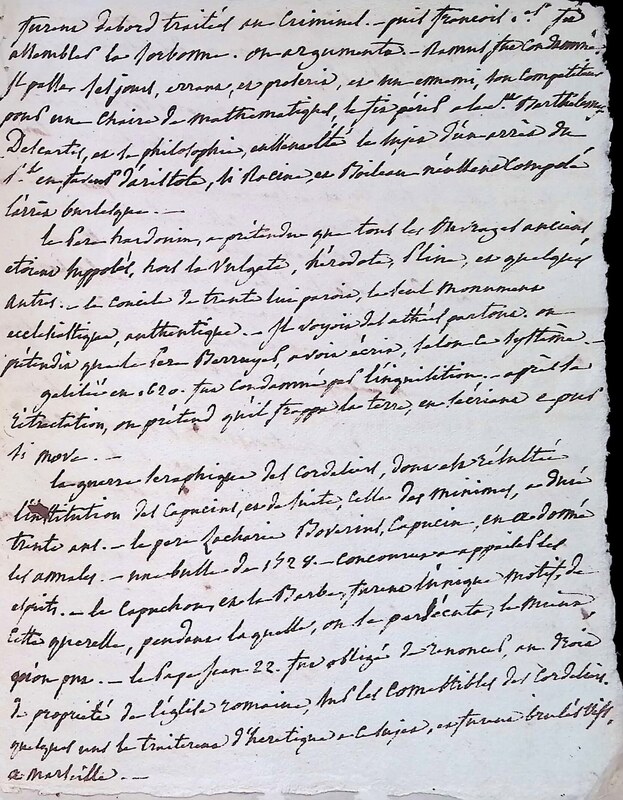 furent d'abord traités au Criminel. - puis francois 1.er fit
assembler la sorbonne. on argumenta. - Ramus fut Condamné
Il passa ses jours, errans, et proscris, et un ennemi, son Compétiteur
pour une Chaire de mathematique, le fit périr a la st Barthelemy.
Descartes, et sa philosophie, eussent été le sujet d'un arrèt du
en faveur d'aristote, si Racine, et Boileau n'eussent Composé
l'arrèt burlesque. —
le Pere hardouin, a prétendu que tous les Ouvrages anciens
etoient supposés, hors la Vulgate, hérodote, Pline, et quelques
autres. - le Concile de trente lui parois, le seul monument
ecclesiastique, authentique. - Il voyoit des athées partout. on
prétendit que le Pere Berruyer, avoit écrit, selon ce systême. -
galilée en 1620. fut Condamné par l'inquisition. - après sa
rétractation, on prétend qu'il frappa la terre, en s'écriant e pur
si move. —
la guerre seraphique des Cordeliers, dont est résultée
l'institution des Capucins, et de suite, Celle des minimes, a duré
trente ans. - le pere Zacharie Boverius, Capucin, en a donné
les annales. - une bulle de 1528. - Concourut a appaiser les
esprits. - le Capuchon, et la Barbe, furent l'unique motif, de
Cette querelle, pendant laquelle, on se persécuta, le mieux
qu'on put. - le Pape Jean 22. fut obligé de renoncer, au droit
de propriété de l'église romaine, sur les Comestibles des Cordeliers.
quelques uns le traiterent d'heretique a Ce sujet, et furent brulés vifs,
a marseille. —